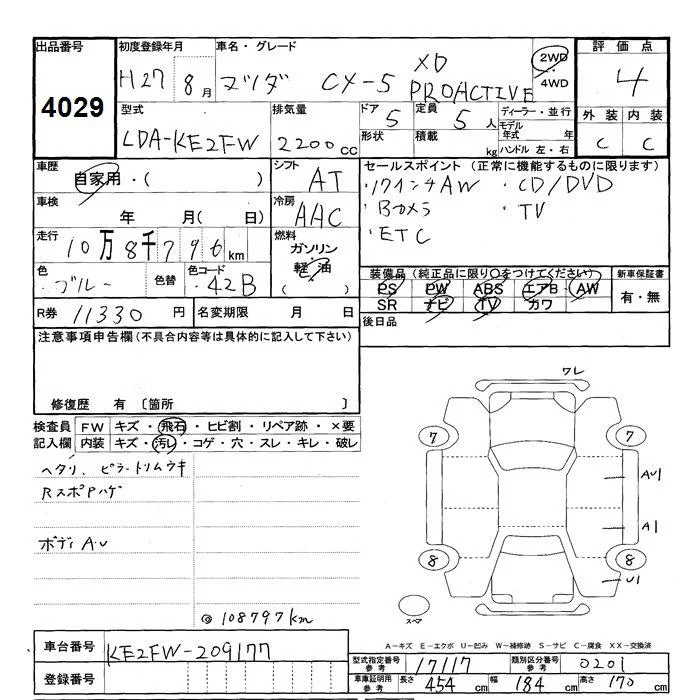 出品番号
4029
初度登録年月
H27 8月
車名・グレード
マツダ CX-5 XD PROACTIVE
2WD・4WD
評価点
4
外装 内装
C C
型式
LDA-KE2FW
排気量
2200cc
ドア 5
形状
定員 5人
積載 kg
ディーラー・並行
モデル年式 年
ハンドル 左・右
車歴
自家用・( )
シフト
AT
車検
年 月( 日)
冷房
AAC
走行
10万8千796km
燃料
ガソリン
軽油
( )
色
ブルー
色替
色コード
42B
R券 11330円
名変期限 月 日
セールスポイント (正常に機能するものに限ります)
・17インチAW ・CD/DVD
・Bカメラ ・TV
・ETC
装備品(純正品に限り○をつけてください)
PS PW ABS エアB AW
SR ナビ TV カワ
新車保証書
有・無
後日品
注意事項申告欄(不具合内容等は具体的に記入して下さい)
修復歴 有〔箇所 〕
検査員記入欄
FW キズ・飛石・ヒビ割・リペア跡・×要
内装 キズ・汚レ・コゲ・穴・スレ・キレ・破レ
ヘタリ、ピラートリムウキ
RスポPハゲ
ボディAU
◎108797km
ワレ
7 7
AU1
A1
8 8
U1
スペア
A-キズ E-エクボ U-凹み W-補修跡 S-サビ C-腐食 XX-交換済
車台番号
KE2FW-209177
登録番号
型式指定番号参考 17117
類別区分番号参考 0201
車庫証明用参考 長さ 454cm 幅 184cm 高さ 170cm